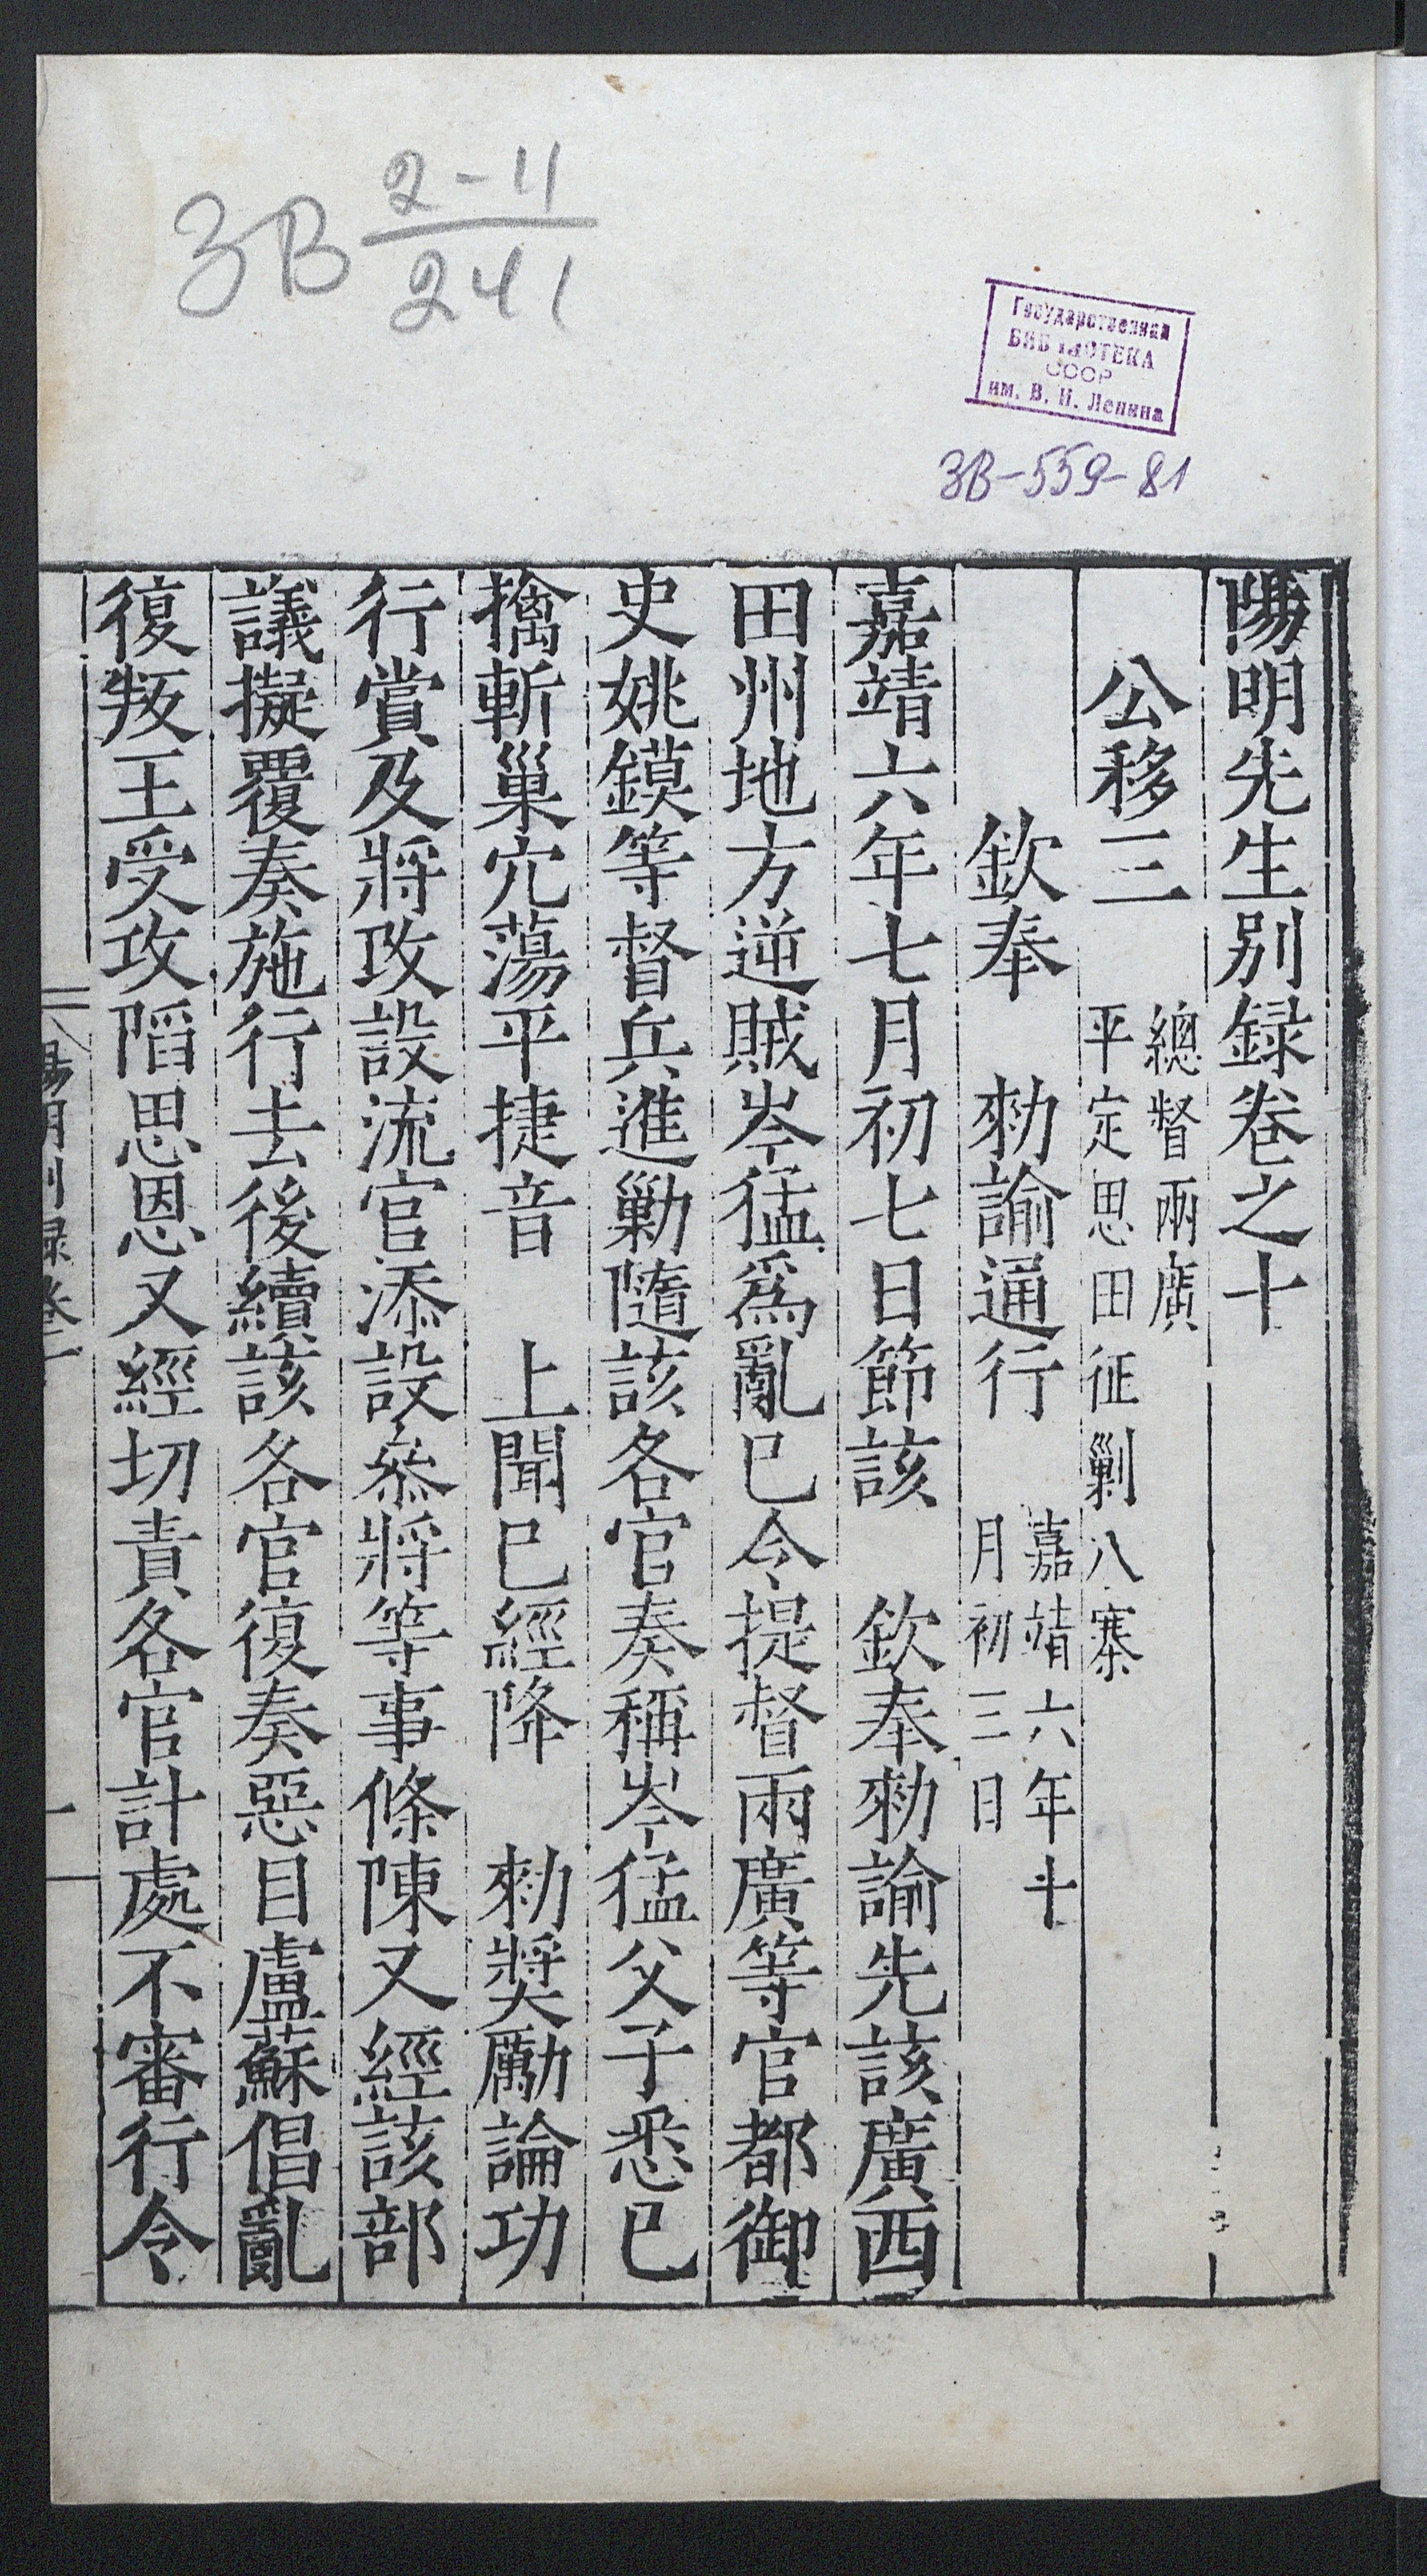 3В 2-11
241
Государственная
БИБЛИОТЕКА
СССР
им. В. И. Ленина
3В-559-81
陽明先生別録卷之十
公移三
總督兩廣
平定思田征剿八寨
欽奉　勑諭通行
嘉靖六年十
月初三日
嘉靖六年七月初七日節該　欽奉勑諭先該廣西
田州地方逆賊岑猛爲亂已令提督兩廣等官都御
史姚鏌等督兵進勦隨該各官奏稱岑猛父子悉已
擒斬巢穴蕩平捷音　上聞已經降　勑奬勵論功
行賞及將攻設流官添設叅將等事條陳又經該部
議擬覆奏施行去後續該各官復奏惡目盧蘇倡亂
復叛王受攻陷思恩又經切責各官計處不審行令
陽明別録卷十
一